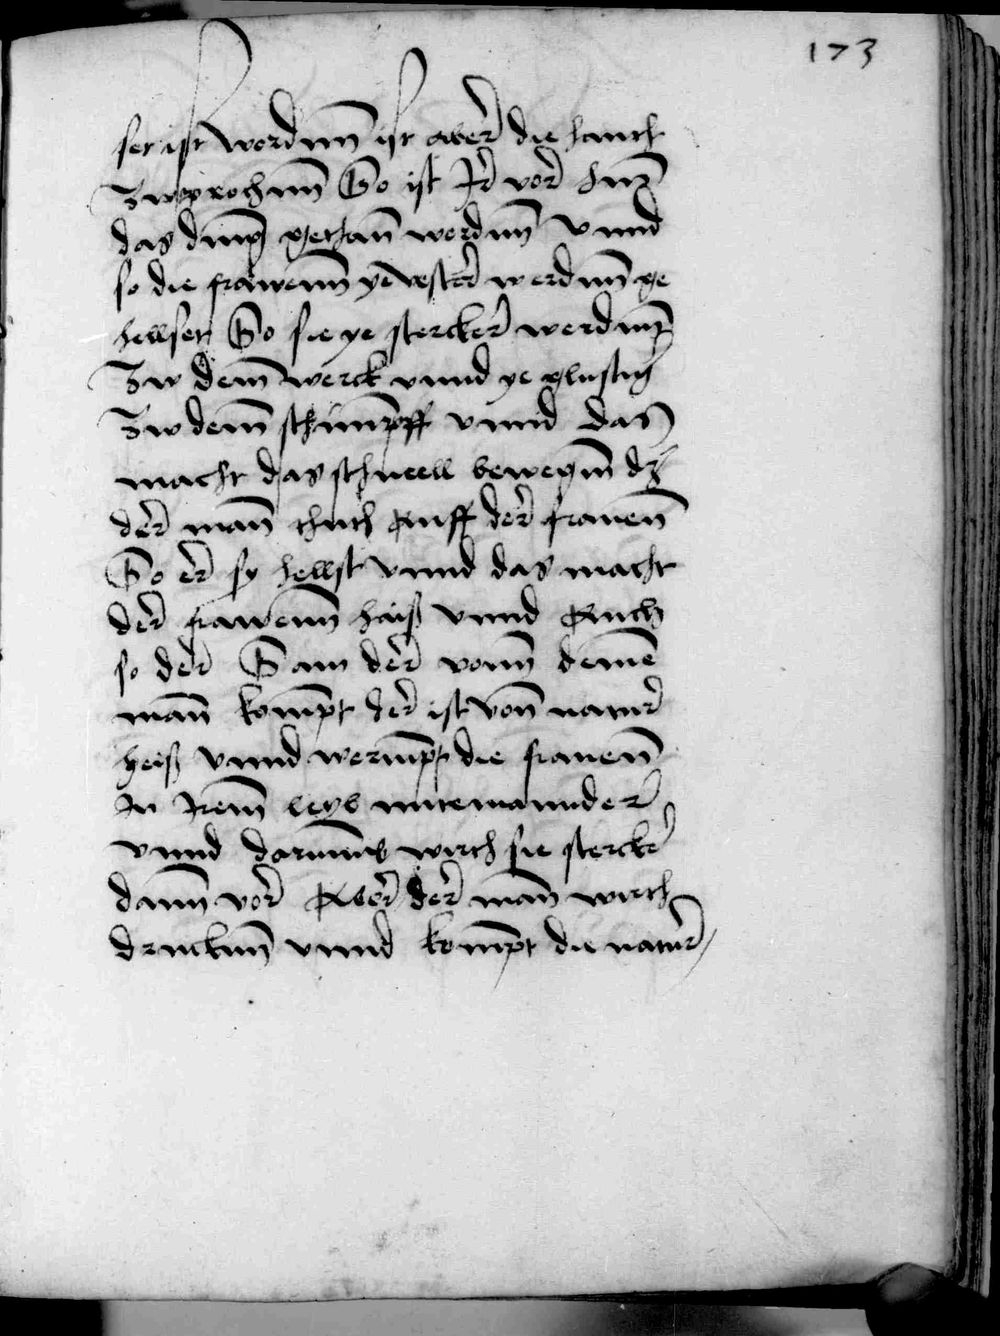 173
ser ist wordenn ist aber die hauth
Zwprochenn So ist Ir vor
das ding gethan wordenn vnnd
so die frawenn ye vester werdenn ge
helset So sie ye stercker werdenn
Zw dem werck vnnd ye glustig
Zw dem schimpff vnnd das
macht das schnell bewegen dz
der man thuth auff der frauen
So er sy helst vnnd das macht
der frawenn haiß vnnd Auch
so der Sam der vonn deme
man kompt der ist von natur
heiß vnnd wermpt die frauen
In Irem leyb miteinannder
vnnd darumb wirth sie stercker
dann vor Aber der man wirth
druckenn vnnd kompt die natur